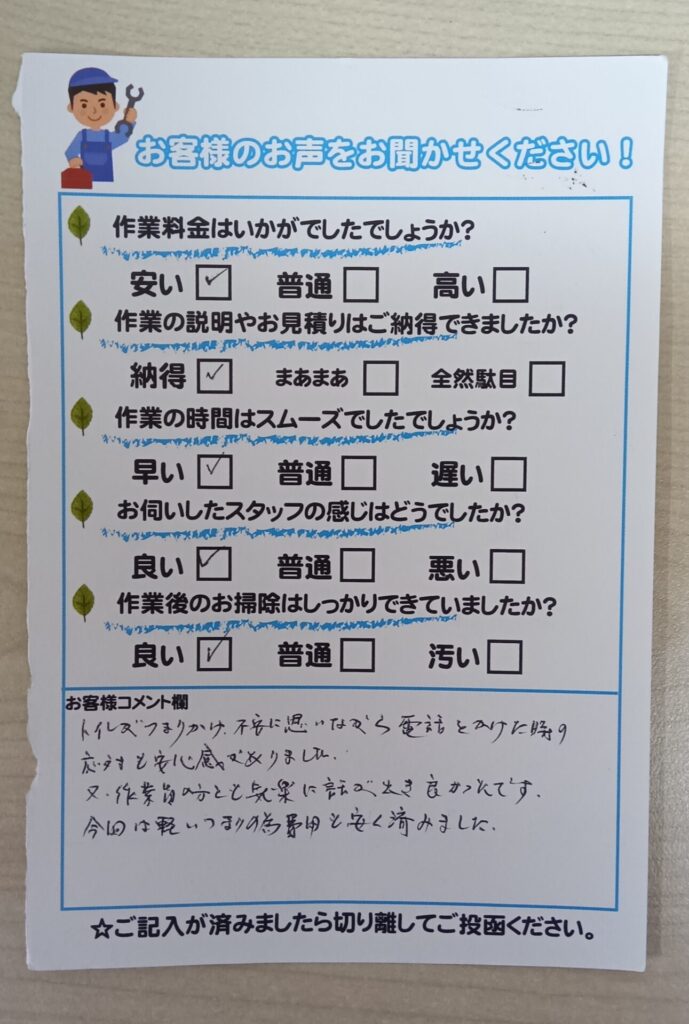 お客様のお声をお聞かせください！
作業料金はいかがでしたでしょうか？
安い ☑ 普通 □ 高い □
作業の説明やお見積りはご納得できましたか？
納得 ☑ まあまあ □ 全然駄目 □
作業の時間はスムーズでしたでしょうか？
早い ☑ 普通 □ 遅い □
お伺いしたスタッフの感じはどうでしたか？
良い ☑ 普通 □ 悪い □
作業後のお掃除はしっかりできていましたか？
良い ☑ 普通 □ 汚い □
お客様コメント欄
トイレがつまりかけ、不安に思いながら電話をかけた時の
応対も安心感がありました。
又、作業員の方とも気楽に話ができ良かったです。
今回は軽いつまりの為費用も安く済みました。
☆ご記入が済みましたら切り離してご投函ください。